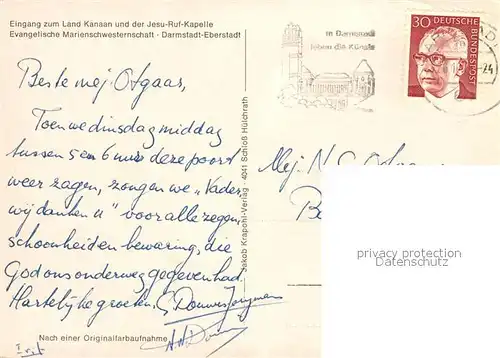 Eingang zum Land Kanaan und der Jesu-Ruf-Kapelle
Evangelische Marienschwesternschaft · Darmstadt-Eberstadt
in Darmstadt
leben die Künste
30 DEUTSCHE
BUNDESPOST
24
Beste mej. Otgaar,
Toen we dinsdag middag
tussen 5 en 6 uur deze poort
weer zagen, zongen we „Vader,
wij danken U" voor alle zegen,
schoonheid en bewaring, die
God ons onderweg gegeven had.
Hartelijke groeten,
Nach einer Originalfarbaufnahme
Jakob Krapohl-Verlag · 4041 Schloß Hülchrath
Mej. N. C. Otgaar
privacy protection
ansichtskarten-lexikon.de